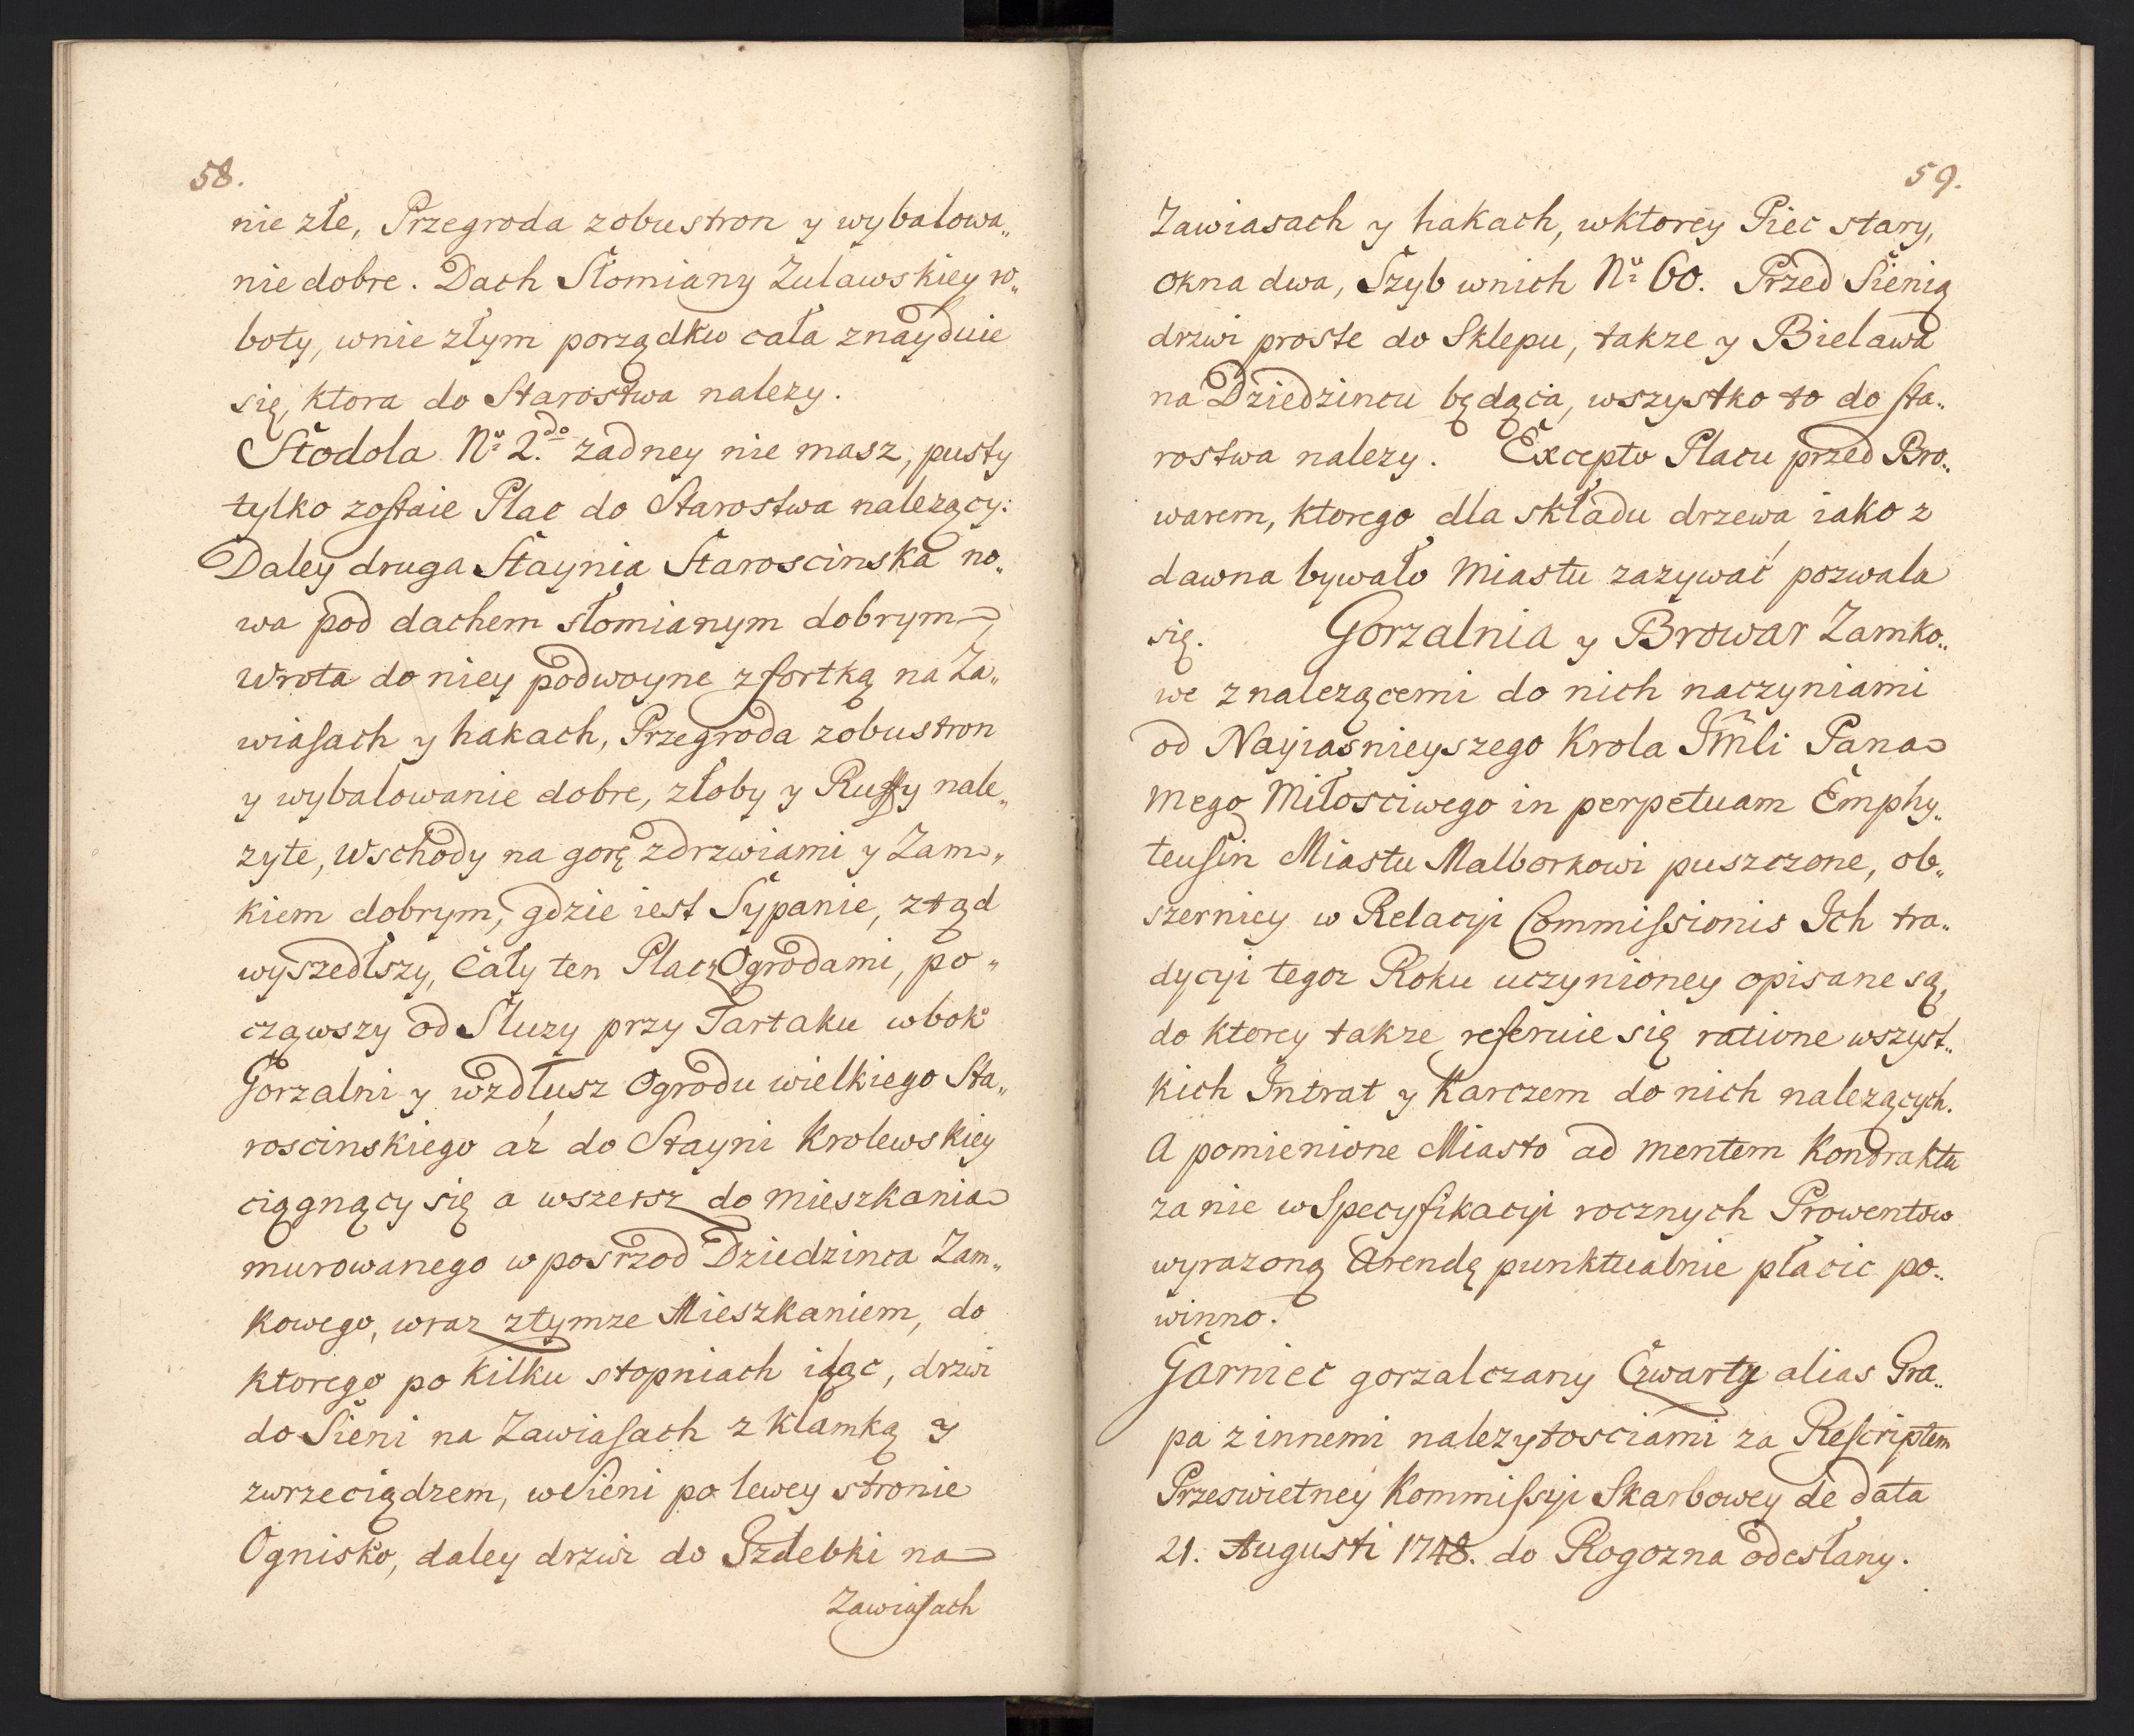 58.
nie złe, Przegroda zobustron y wybalowa„
nie dobre. Dach Słomiany Zulawskiey ro„
boty, wnie złym porządku cała znayduie
się, ktora do Starostwa nalezy.
Stodola Nº 2.do zadney nie masz, pusty
tylko zostaie Plac do Starostwa nalezący:
Daley druga Staynia Staroscinska no„
wa pod dachem słomianym dobrym,
Wrota do niey podwoyne z fortką na Za„
wiasach y hakach, Przegroda zobustron
y wybalowanie dobre, złoby y Ruffy nale„
zyte, Wschody na gorę zdrzwiami y Zam„
kiem dobrym, gdzie iest Sypanie, ztąd
wyszedłszy, Cały ten Plac z Ogrodami, po„
cząwszy od Sluzy przy Tartaku wbok
Gorzalni y wzdłusz Ogrodu wielkiego Sta„
roscinskiego aż do Stayni Krolewskiey
ciągnący się a wszersz do mieszkania
murowanego w posrzod Dziedzinca Zam„
kowego, wraz ztymze Mieszkaniem, do
ktorego po kilku stopniach idąc, drzwi
do Sieni na Zawiasach z klamką y
zwrzeciądzem, wSieni po lewey stronie
Ognisko, daley drzwi do Izdebki na
Zawiasach
59.
Zawiasach y hakach, wktorey Piec stary,
okna dwa, Szyb wnich Nº 60. Przed Sienią
drzwi proste do Sklepu, takze y Bielawa
na Dziedzincu będąca, wszystko to do Sta„
rostwa nalezy. Excepto Placu przed Bro„
warem, ktorego dla składu drzewa iako z
dawna bywało Miastu zazywać pozwala
się. Gorzalnia y Browar Zamko„
we z nalezącemi do nich naczyniami
od Nayiasnieyszego Krola JMli Pana
mego Miłosciwego in perpetuam Emphy„
teusin Miastu Malborkowi puszczone, ob„
szerniey w Relacyi Commissionis Ich tra„
dycyi tegoz Roku uczynioney opisane są,
do ktorey takze referuie się ratione wszyst„
kich Intrat y Karczem do nich nalezących.
A pomienione Miasto ad mentem Kondraktu
za nie w Specyfikacyi rocznych Prowentow
wyrazoną Arendę punktualnie płacic po„
winno.
Garniec gorzalczany Czwarty alias Gra„
pa z innemi nalezytosciami za Rescriptem
Przeswietney Kommissyi Skarbowey de data
21. Augusti 1748. do Rogozna odesłany.